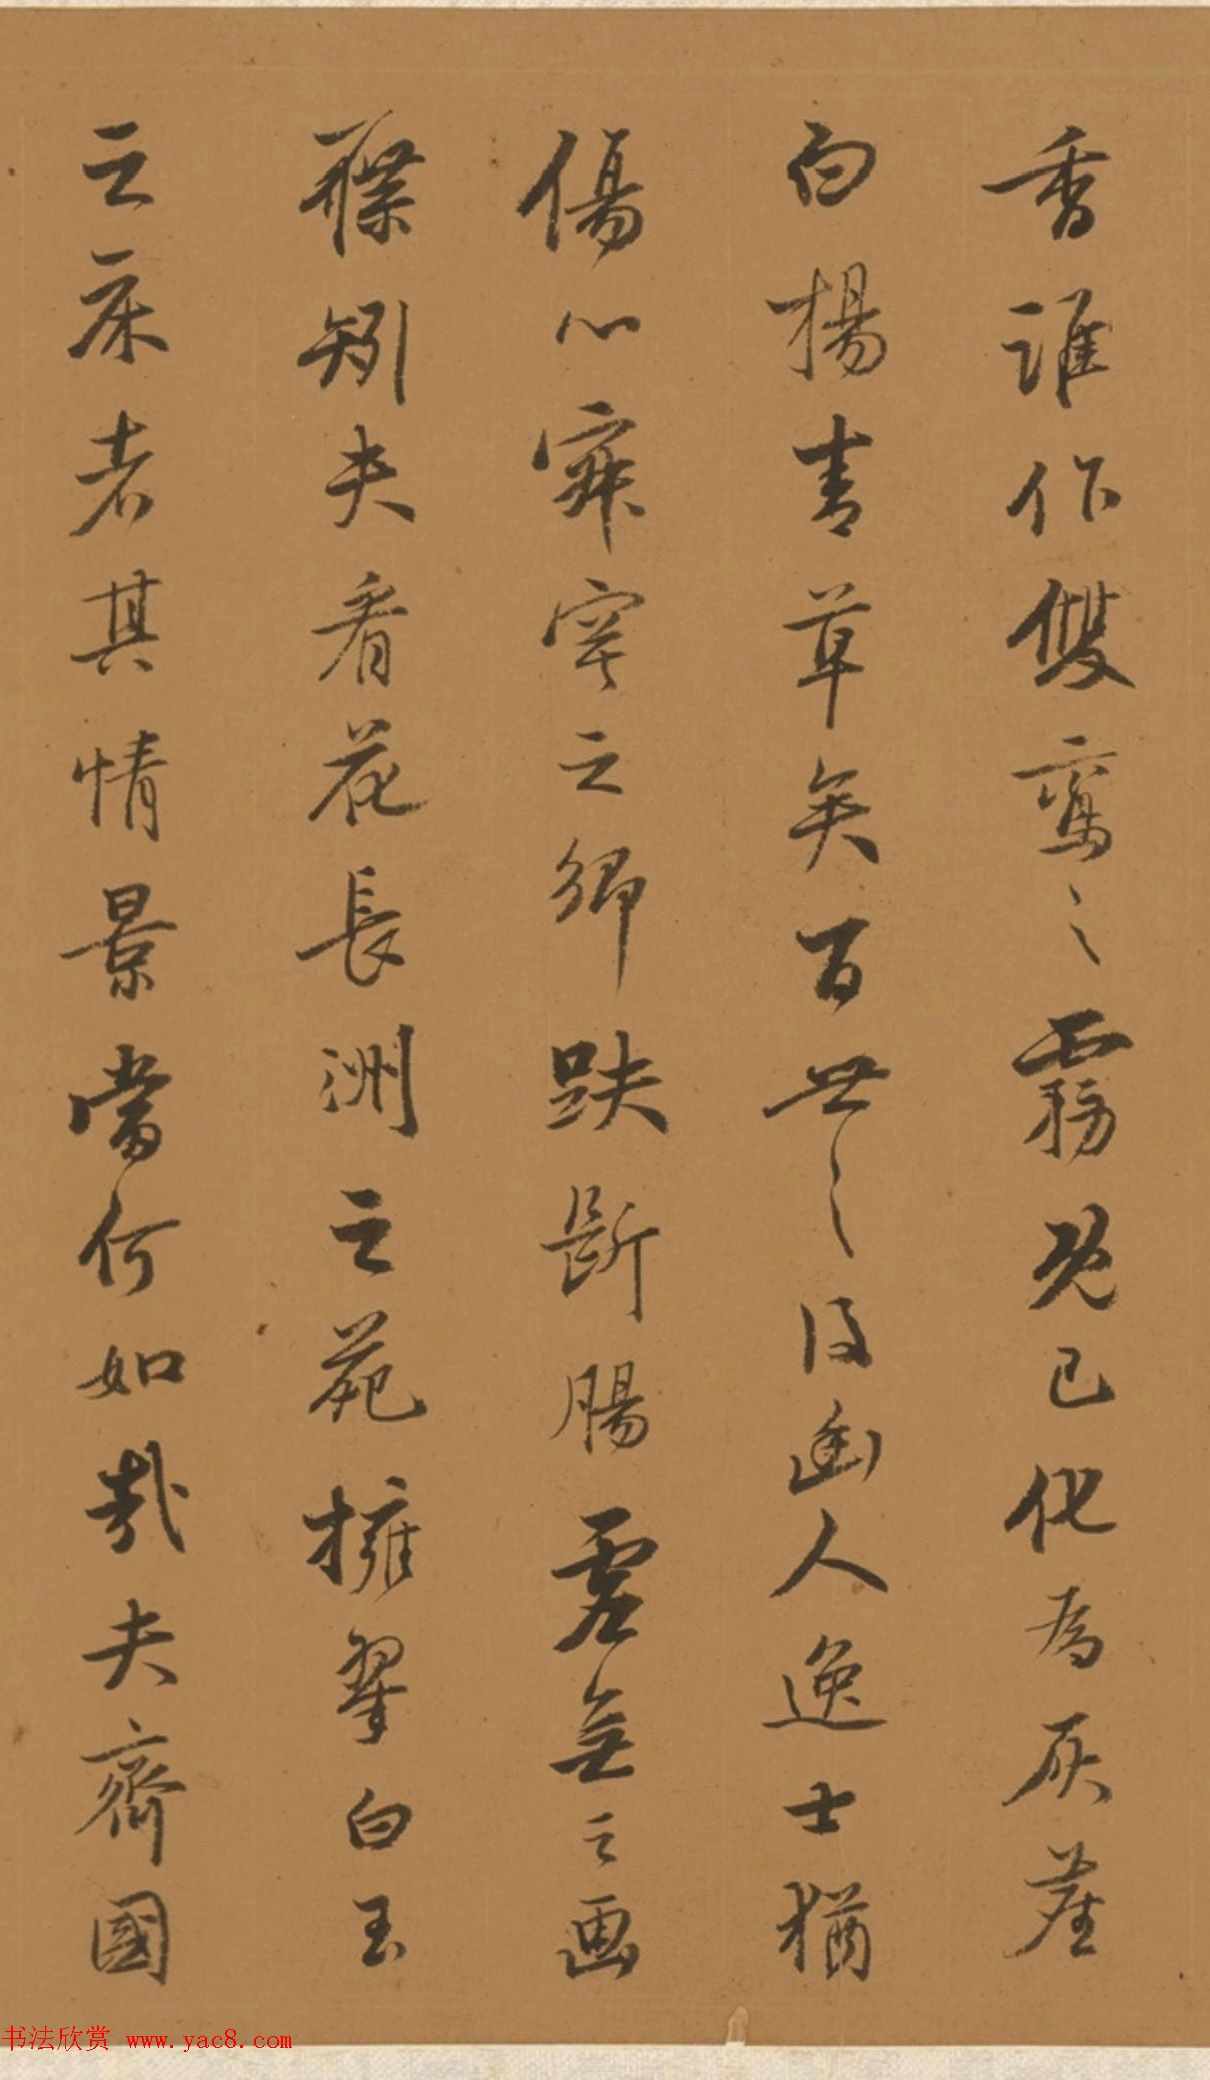 香誰作雙鸞之霧既已化為灰塵
白楊青草矣百世之後幽人逸士猶
傷心寂寞之鄉跌斷腸虛無之画
牒矧夫看花長洲之苑擁翠白玉
之床者其情景當何如哉夫齊國
书法欣赏 www.yac8.com